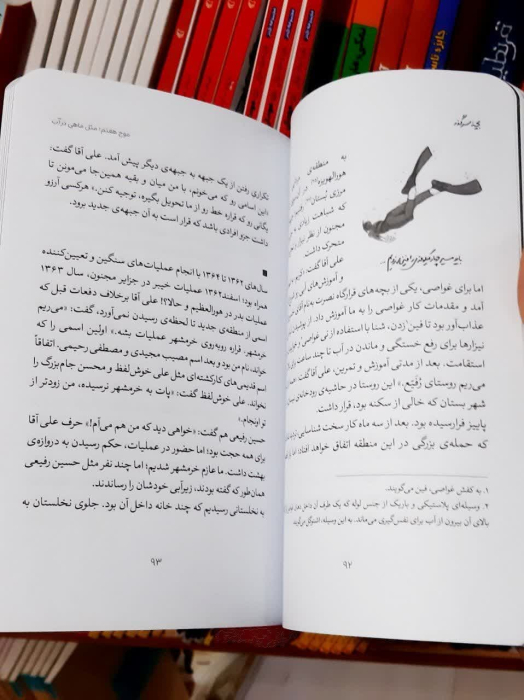 به منطقه‌ی
هورالهویزه
مرزی بُستان
که شباهت زیادی
مجنون از نظر
متحرک داشت.
علی آقا گفت:
و آموزش‌های آبی
اما برای غواصی، یکی از بچه‌های قرارگاه نصرت به
آمد و مقدمات کار غواصی را به ما آموزش داد. از
عذاب‌آور بود تا فین‌زدن، شنا با استفاده از نی غواصی
نیزارها برای رفع خستگی و ماندن در آب تا چند ساعت برای
استقامت. بعد از مدتی آموزش و تمرین، علی آقا گفت:
می‌ریم روستای رُفَیّع.» این روستا در حاشیه‌ی رودخانه‌ی
شهر بستان که خالی از سکنه بود، قرار داشت.
پاییز فرارسیده بود. بعد از سه ماه کار سخت شناسایی
که حمله‌ی بزرگی در این منطقه اتفاق خواهد افتاد؛ اما
۱. به کفش غواصی، فین می‌گویند.
۲. وسیله‌ای پلاستیکی و باریک از جنس لوله که یک طرف آن داخل دهان
بالای آن بیرون از آب برای نفس‌گیری می‌ماند. به این وسیله، اشنوکل می‌گویند.
۹۲
موج هفتم: مثل ماهی در آب
تکراری رفتن از یک جبهه به جبهه‌ی دیگر پیش آمد. علی آقا گفت:
«این اسامی رو که می‌خونم، با من میان و بقیه همین‌جا می‌مونن تا
یگانی رو که قراره خط رو از ما تحویل بگیره، توجیه کنن.» هرکسی آرزو
داشت جزو افرادی باشد که قرار است به آن جبهه‌ی جدید برود.
سال‌های ۱۳۶۲ تا ۱۳۶۴ با انجام عملیات‌های سنگین و تعیین‌کننده
همراه بود: اسفند ۱۳۶۲ عملیات خیبر در جزایر مجنون، سال ۱۳۶۳
عملیات بدر در هورالعظیم و حالا؟! علی آقا برخلاف دفعات قبل که
اسمی از منطقه‌ی جدید تا لحظه‌ی رسیدن نمی‌آورد، گفت: «می‌ریم
خرمشهر. قراره روبه‌روی خرمشهر عملیات بشه.» اولین اسمی را که
خواند، نام من بود و بعد اسم مصیب مجیدی و مصطفی رحیمی. اتفاقاً
اسم قدیمی‌های کارکشته‌ای مثل علی خوش‌لفظ و محسن جام‌بزرگ را
نخواند. علی خوش‌لفظ گفت: «پات به خرمشهر نرسیده، من زودتر از
تو اونجام.»
حسین رفیعی هم گفت: «خواهی دید که من هم می‌آم!» حرف علی آقا
برای همه حجت بود؛ اما حضور در عملیات، حکم رسیدن به دروازه‌ی
بهشت داشت. ما عازم خرمشهر شدیم؛ اما چند نفر مثل حسین رفیعی
همان‌طور که گفته بودند، زیرآبی خودشان را رساندند.
به نخلستانی رسیدیم که چند خانه داخل آن بود. جلوی نخلستان به
۹۳